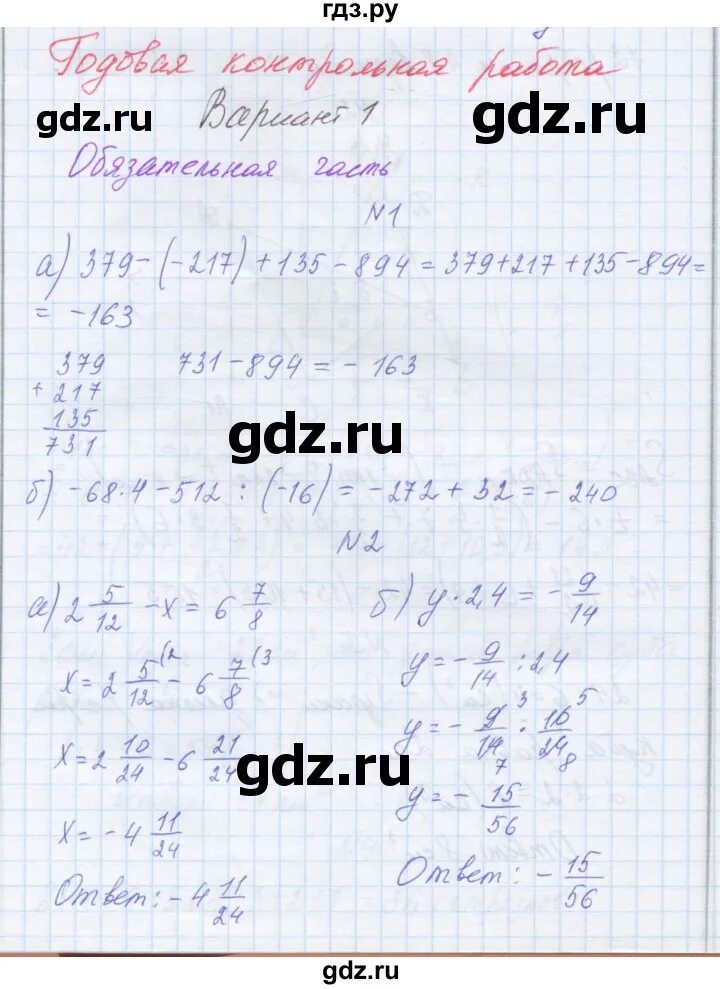 гдз.ру
Годовая контрольная работа
gdz.ru
Вариант 1
gdz.ru
Обязательная часть
N1
а) 379-(-217)+135-894=379+217+135-894=
= -163
379
+ 217
135
731
731-894=-163
gdz.ru
б) -68·4-512:(-16)=-272+32=-240
N2
а) 2 5/12 - x = 6 7/8
x = 2 5/12 (2 - 6 7/8 (3
x = 2 10/24 - 6 21/24
gdz.ru
x = -4 11/24
Ответ: -4 11/24
б) y·2,4 = - 9/14
y = - 9/14 : 2,4
y = - 9 3/14 7 : 10 5/24 8
y = - 15/56
Ответ: - 15/56
gdz.ru